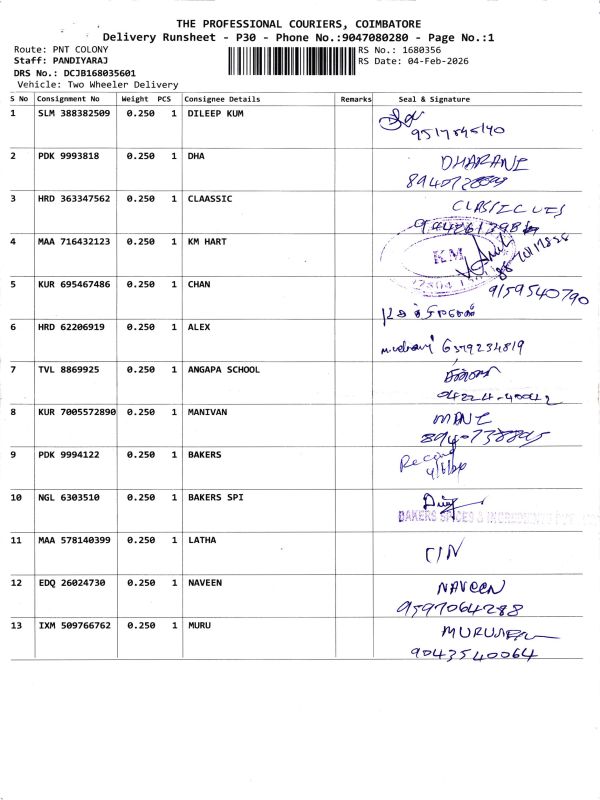 THE PROFESSIONAL COURIERS, COIMBATORE
Delivery Runsheet - P30 - Phone No.:9047080280 - Page No.:1
Route: PNT COLONY
RS No.: 1680356
Staff: PANDIYARAJ
RS Date: 04-Feb-2026
DRS No.: DCJB168035601
Vehicle: Two Wheeler Delivery
S No Consignment No Weight PCS Consignee Details Remarks Seal & Signature
1 SLM 388382509 0.250 1 DILEEP KUM
2 PDK 9993818 0.250 1 DHA DHARANI
3 HRD 363347562 0.250 1 CLAASSIC CLASSIC
4 MAA 716432123 0.250 1 KM HART
KM
5 KUR 695467486 0.250 1 CHAN 9159540790
6 HRD 62206919 0.250 1 ALEX
6379234819
7 TVL 8869925 0.250 1 ANGAPA SCHOOL
8 KUR 7005572890 0.250 1 MANIVAN MANI
9 PDK 9994122 0.250 1 BAKERS
10 NGL 6303510 0.250 1 BAKERS SPI
BAKERS SPICES & INGREDIENTS
11 MAA 578140399 0.250 1 LATHA
12 EDQ 26024730 0.250 1 NAVEEN NAVEEN
9597064288
13 IXM 509766762 0.250 1 MURU
9043540064